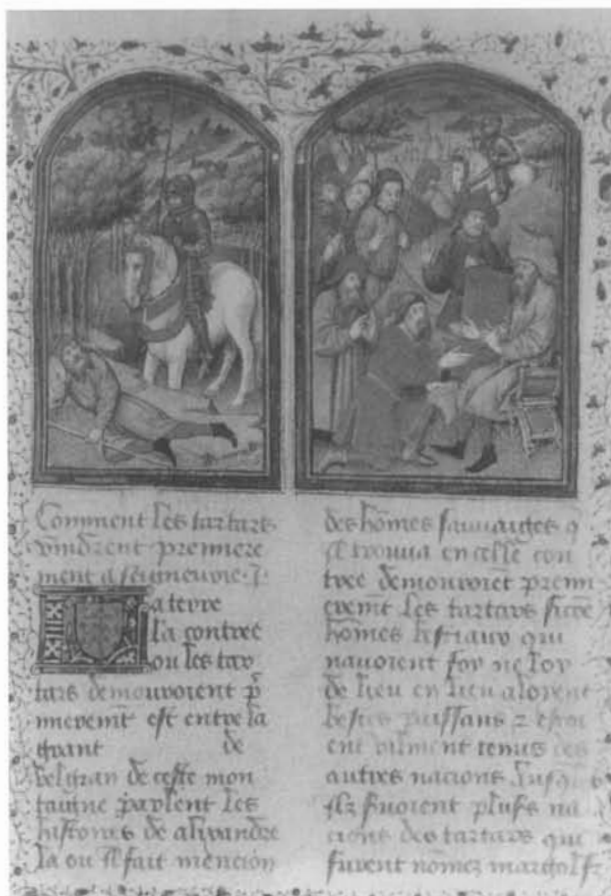 Comment les tartars
vindrent premiere
ment a seigneurie. j.
La terre
la contree
ou les tar
tars demouroient p̄
mierem̄t est entre la
grant de
belgran de ceste mon
taigne parlent les
histoires de alixandre
la ou il fait mencion
des hōmes sauvaiges q̄
il trouva en celle con
tree demouroiēt premi
erem̄t les tartars sicōe
hōmes bestiaux qui
navoient foy ne loy
de lieu en lieu aloient
bestes puissans z estoi
ent vilment tenus des
autres nacions
ilz furoient pluss na
cions des tartars qui
furent nōmez